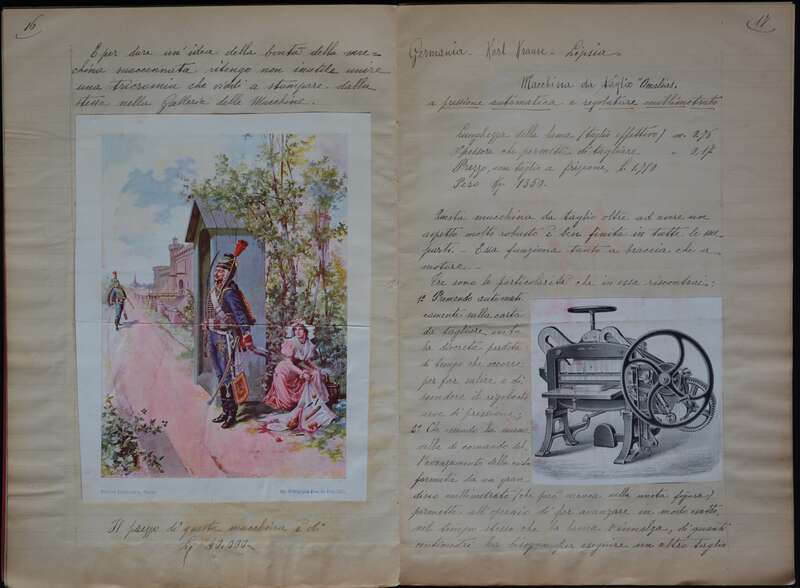 16
E per dare un'idea della bontà della mac-
china succennata ritengo non inutile unire
una tricromia che vidi a stampare dalla
stessa nella Galleria delle Macchine.
Il prezzo di questa macchina è di
17
Germania - Karl Krause - Lipsia -
Macchina da taglio
a pressione automatica e regolatore millimetrato
Lunghezza della lama (taglio effettivo) m. 0,75
Spessore che permette di tagliare
Prezzo, con taglio a frizione, L.
Peso Kg. 1350.
Questa macchina da taglio oltre ad avere un
aspetto molto robusto è ben finita in tutte le sue
parti. - Essa funziona tanto a braccia che a
motore. -
Tre sono le particolarità che in essa riscontrai:
1ª Premendo automati
camente sulla carta
da tagliare, evita
la discreta perdita
di tempo che occorre
per far salire e di
scendere il regolatore
di pressione;
2ª Che essendo la mano
vella di comando del
l'avanzamento della
fornita da un gran
disco millimetrato (che però manca nella unita figura)
permette all'operaio di far avanzare in modo esatto,
nel tempo stesso che la lama s'innalza, di quanti
centimetri ha bisogno per eseguire un altro taglio